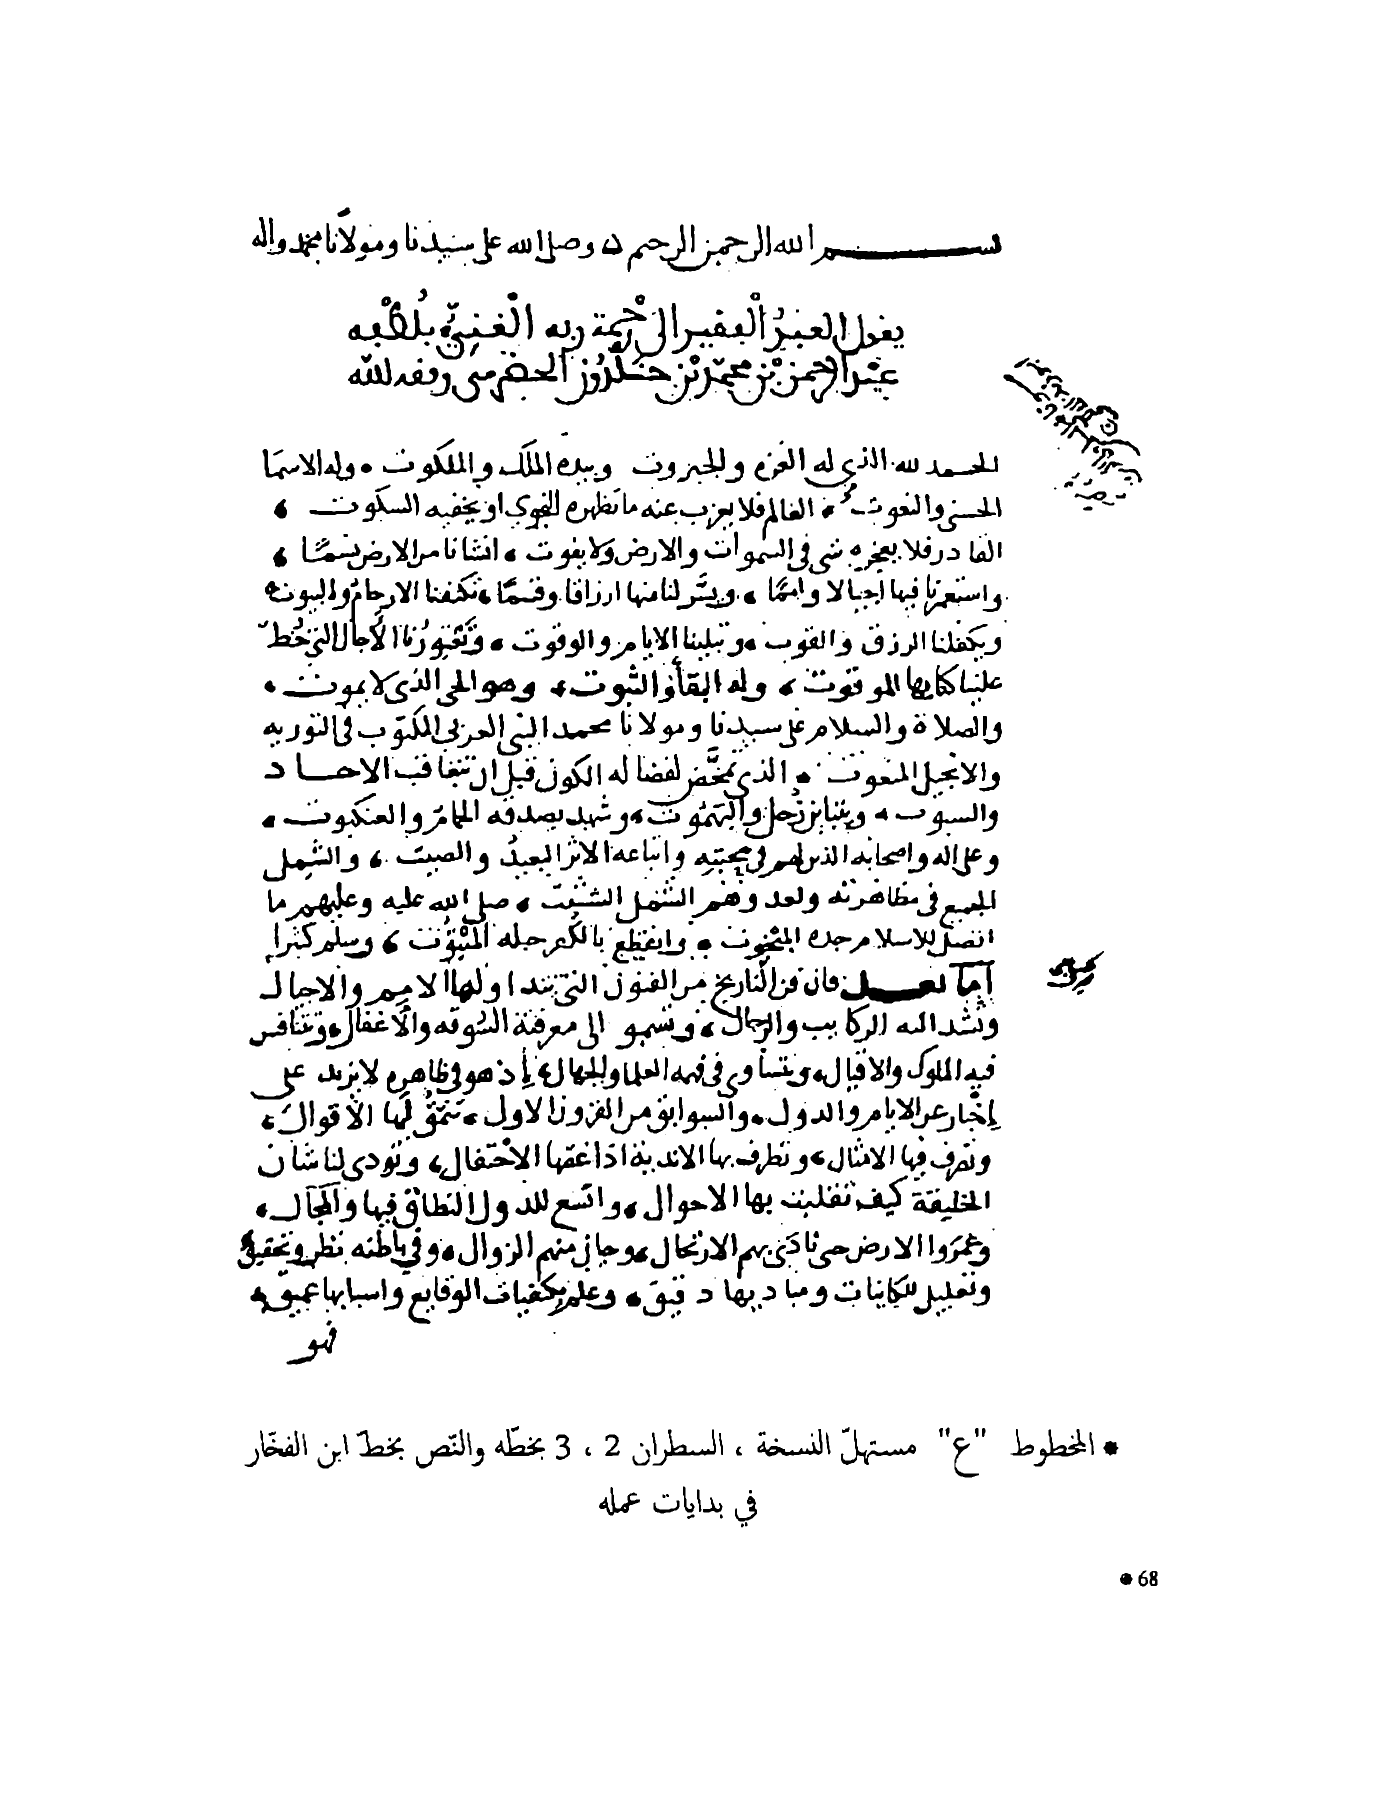 بسم الله الرحمن الرحيم وصلى الله على سيدنا ومولانا محمد واله
يقول العبد الفقير الى رحمة ربه الغني بلطفه
عبد الرحمن بن محمد بن خلدون الحضرمي وفقه لله
الحمد لله الذي له العزة والجبروت وبيده الملك والملكوت ، وله الاسما
الحسنى والنعوت ، العالم فلا يعزب عنه ما تظهره النجوى او يخفيه السكوت ،
القادر فلا يعجزه شي في السموات والارض ولا يفوت ، انشانا من الارض نسمًا ،
واستعمرنا فيها اجيالا وامما ، ويسَّر لنا منها ارزاقا وقسمًا ، تكنفنا الارحام والبيوت
ويكفلنا الرزق والقوت ، وتبلينا الايام والوقوت ، وتَعْتَوِرُنا الآجال التي خُطّ
علينا كتابها الموقوت ، وله البقاء والثبوت ، وهو الحي الذي لا يموت ،
والصلاة والسلام على سيدنا ومولانا محمد النبي العربي المكتوب في التوريه
والانجيل المنعوت ، الذي تمخَّض لفصاله الكون قبل ان تتعاقب الاحاد
والسبوت ، ويتباين زُحل والبَهَمُوت ، وشهد بصدقه الحمام والعنكبوت ،
وعلى اله واصحابه الذين لهم في محبته واتباعه الاثر البعيدُ والصيت ، والشمل
الجميع في مظاهرته ولعدوهم الشمل الشتيت ، صلى الله عليه وعليهم ما
اتصل للاسلام جده المبخوت ، وانقطع بالكفر حبله المبْتُوت ، وسلم كثيرا
امّا بعد فان فن التاريخ من الفنون التي تتداولها الامم والاجيال
وتُشد اليه الركايب والرحال ، وتسمو الى معرفته السُوقه والاغفال ، وتتنافس
فيه الملوك والاقيال ، ويتساوى في فهمه العلما والجهال ، إذ هو في ظاهره لا يزيد على
إخبار عن الايام والدول ، والسوابق من القرون الاول ، تنمَّقُ لها الاقوال ،
وتصرف فيها الامثال ، وتطرف بها الاندية اذا غصها الاحتفال ، وتودي لنا شان
الخليقة كيف تقلبت بها الاحوال ، واتسع للدول النطاق فيها والمجال ،
وعمَروا الارض حتى نادَى بهم الارتحال ، وحان منهم الزوال ، وفي باطنه نظر وتحقيق
وتعليل للكاينات ومباديها دقيق ، وعلم بكيفيات الوقايع واسبابها عميق ،
فهو
• المخطوط "ع" مستهلّ النسخة ، السطران 2 ، 3 بخطّه والنّص بخطّ ابن الفخّار
في بدايات عمله
68 •